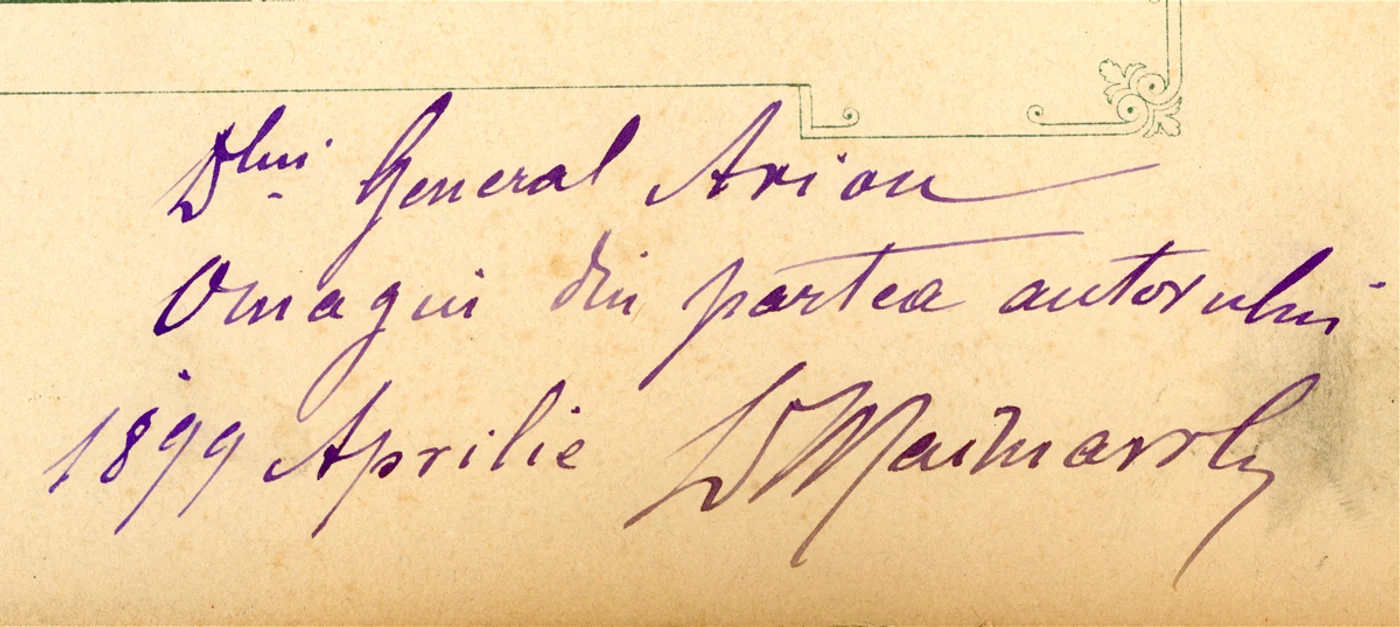 Dlui General Arion
Omagiu din partea autorului
1899 Aprilie D Maimarolu